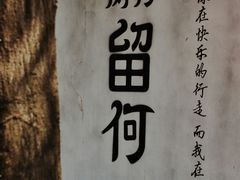 留何
在快乐的行走 而我在